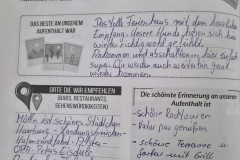 DAS BESTE AN UNSEREM
AUFENTHALT WAR
Das tolle Ferienhaus mit dem herzlichen
Empfang. Unsere Hunde haben sich hier
wieder richtig wohl gefühlt.
Ankommen und abschalten, hier
Wir werden auch
wieder kommen.
ORTE DIE WIR EMPFEHLEN
(BARS, RESTAURANTS,
SEHENSWÜRDIGKEITEN)
Mölln ist schönes Städtchen
Hamburg - Landungsbrücken -
Hafenrundfahrt
Die schönste Erinnerung an unseren
Aufenthalt ist
- schöne Radtouren
- Natur pur genießen
- schöne Terrasse u.
Garten mit Grill